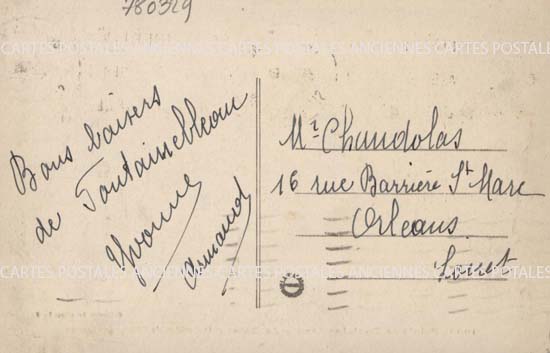 780329
CARTES POSTALES ANCIENNES CARTES POSTALES
Bons baisers
de Fontainebleau
Yvonne
Armand
Mr Chandolas
16 rue Barrière St Marc
Orleans
Loiret
CARTES POSTALES ANCIENNES CARTES POSTALES